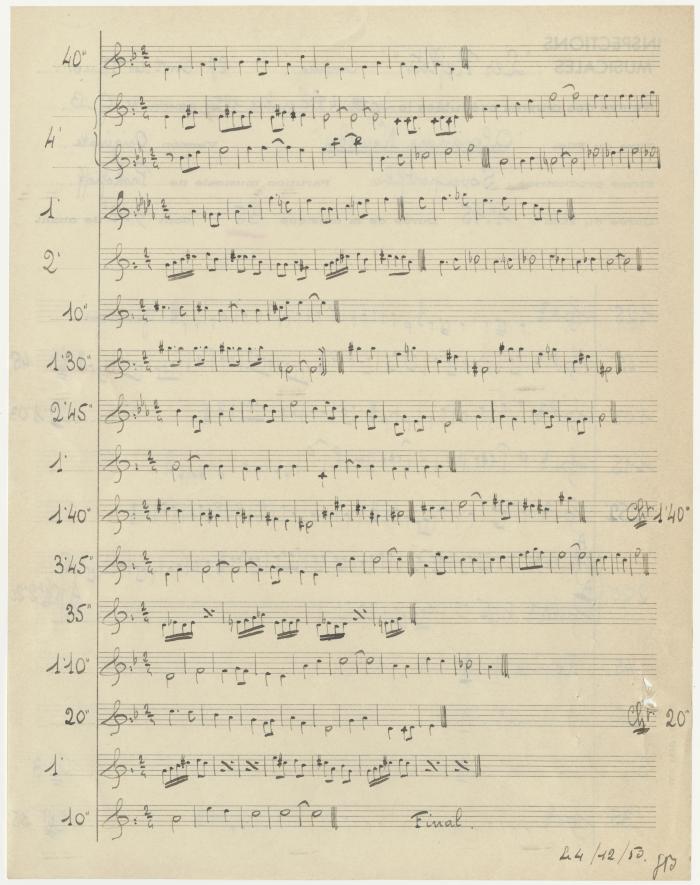 40"
4'
1'
2'
10"
1'30"
2'45"
1'
1'40" Chr 1'40"
3'45"
35"
1'10"
20" Chr 20"
1'
10" Final.
/12/53.